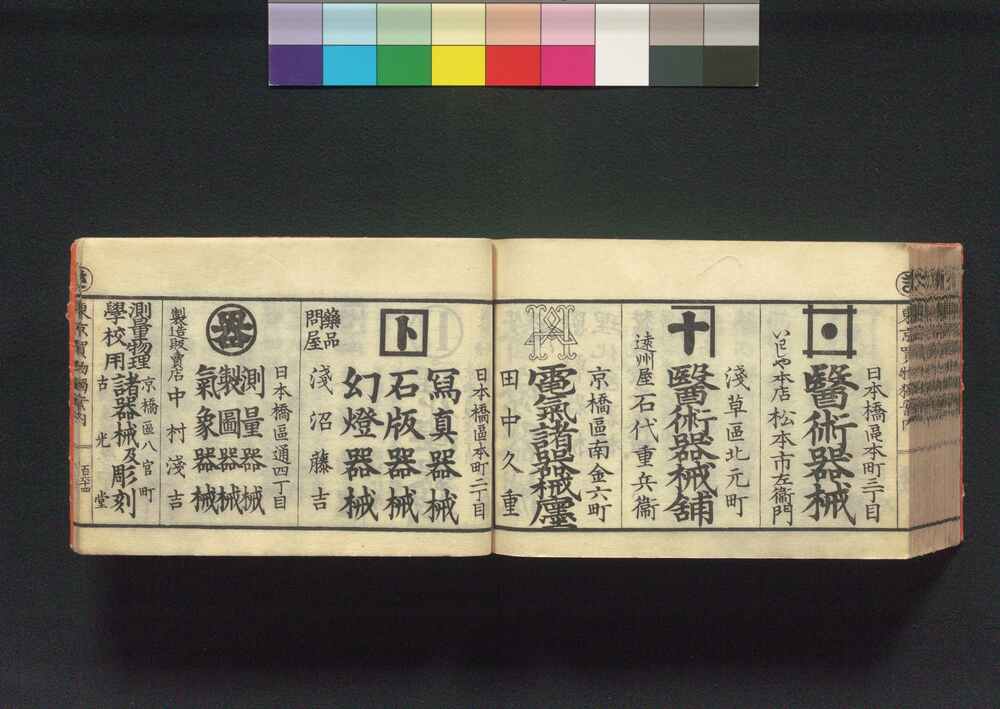 日本橋區本町三丁目
醫術器械
いわしや本店松本市左衞門
淺草區北元町
十
醫術器械舗
遠州屋石代重兵衞
京橋區南金六町
電氣諸器械
田中久重
日本橋區本町二丁目
寫真器械
石版器械
幻燈器械
卜
藥品問屋
淺沼藤吉
日本橋區通四丁目
測量器械
製圖器械
氣象器械
製造販賣店
中村淺吉
京橋區八官町
測量物理
學校用
諸器械及彫刻
古光堂
東京買物獨案内